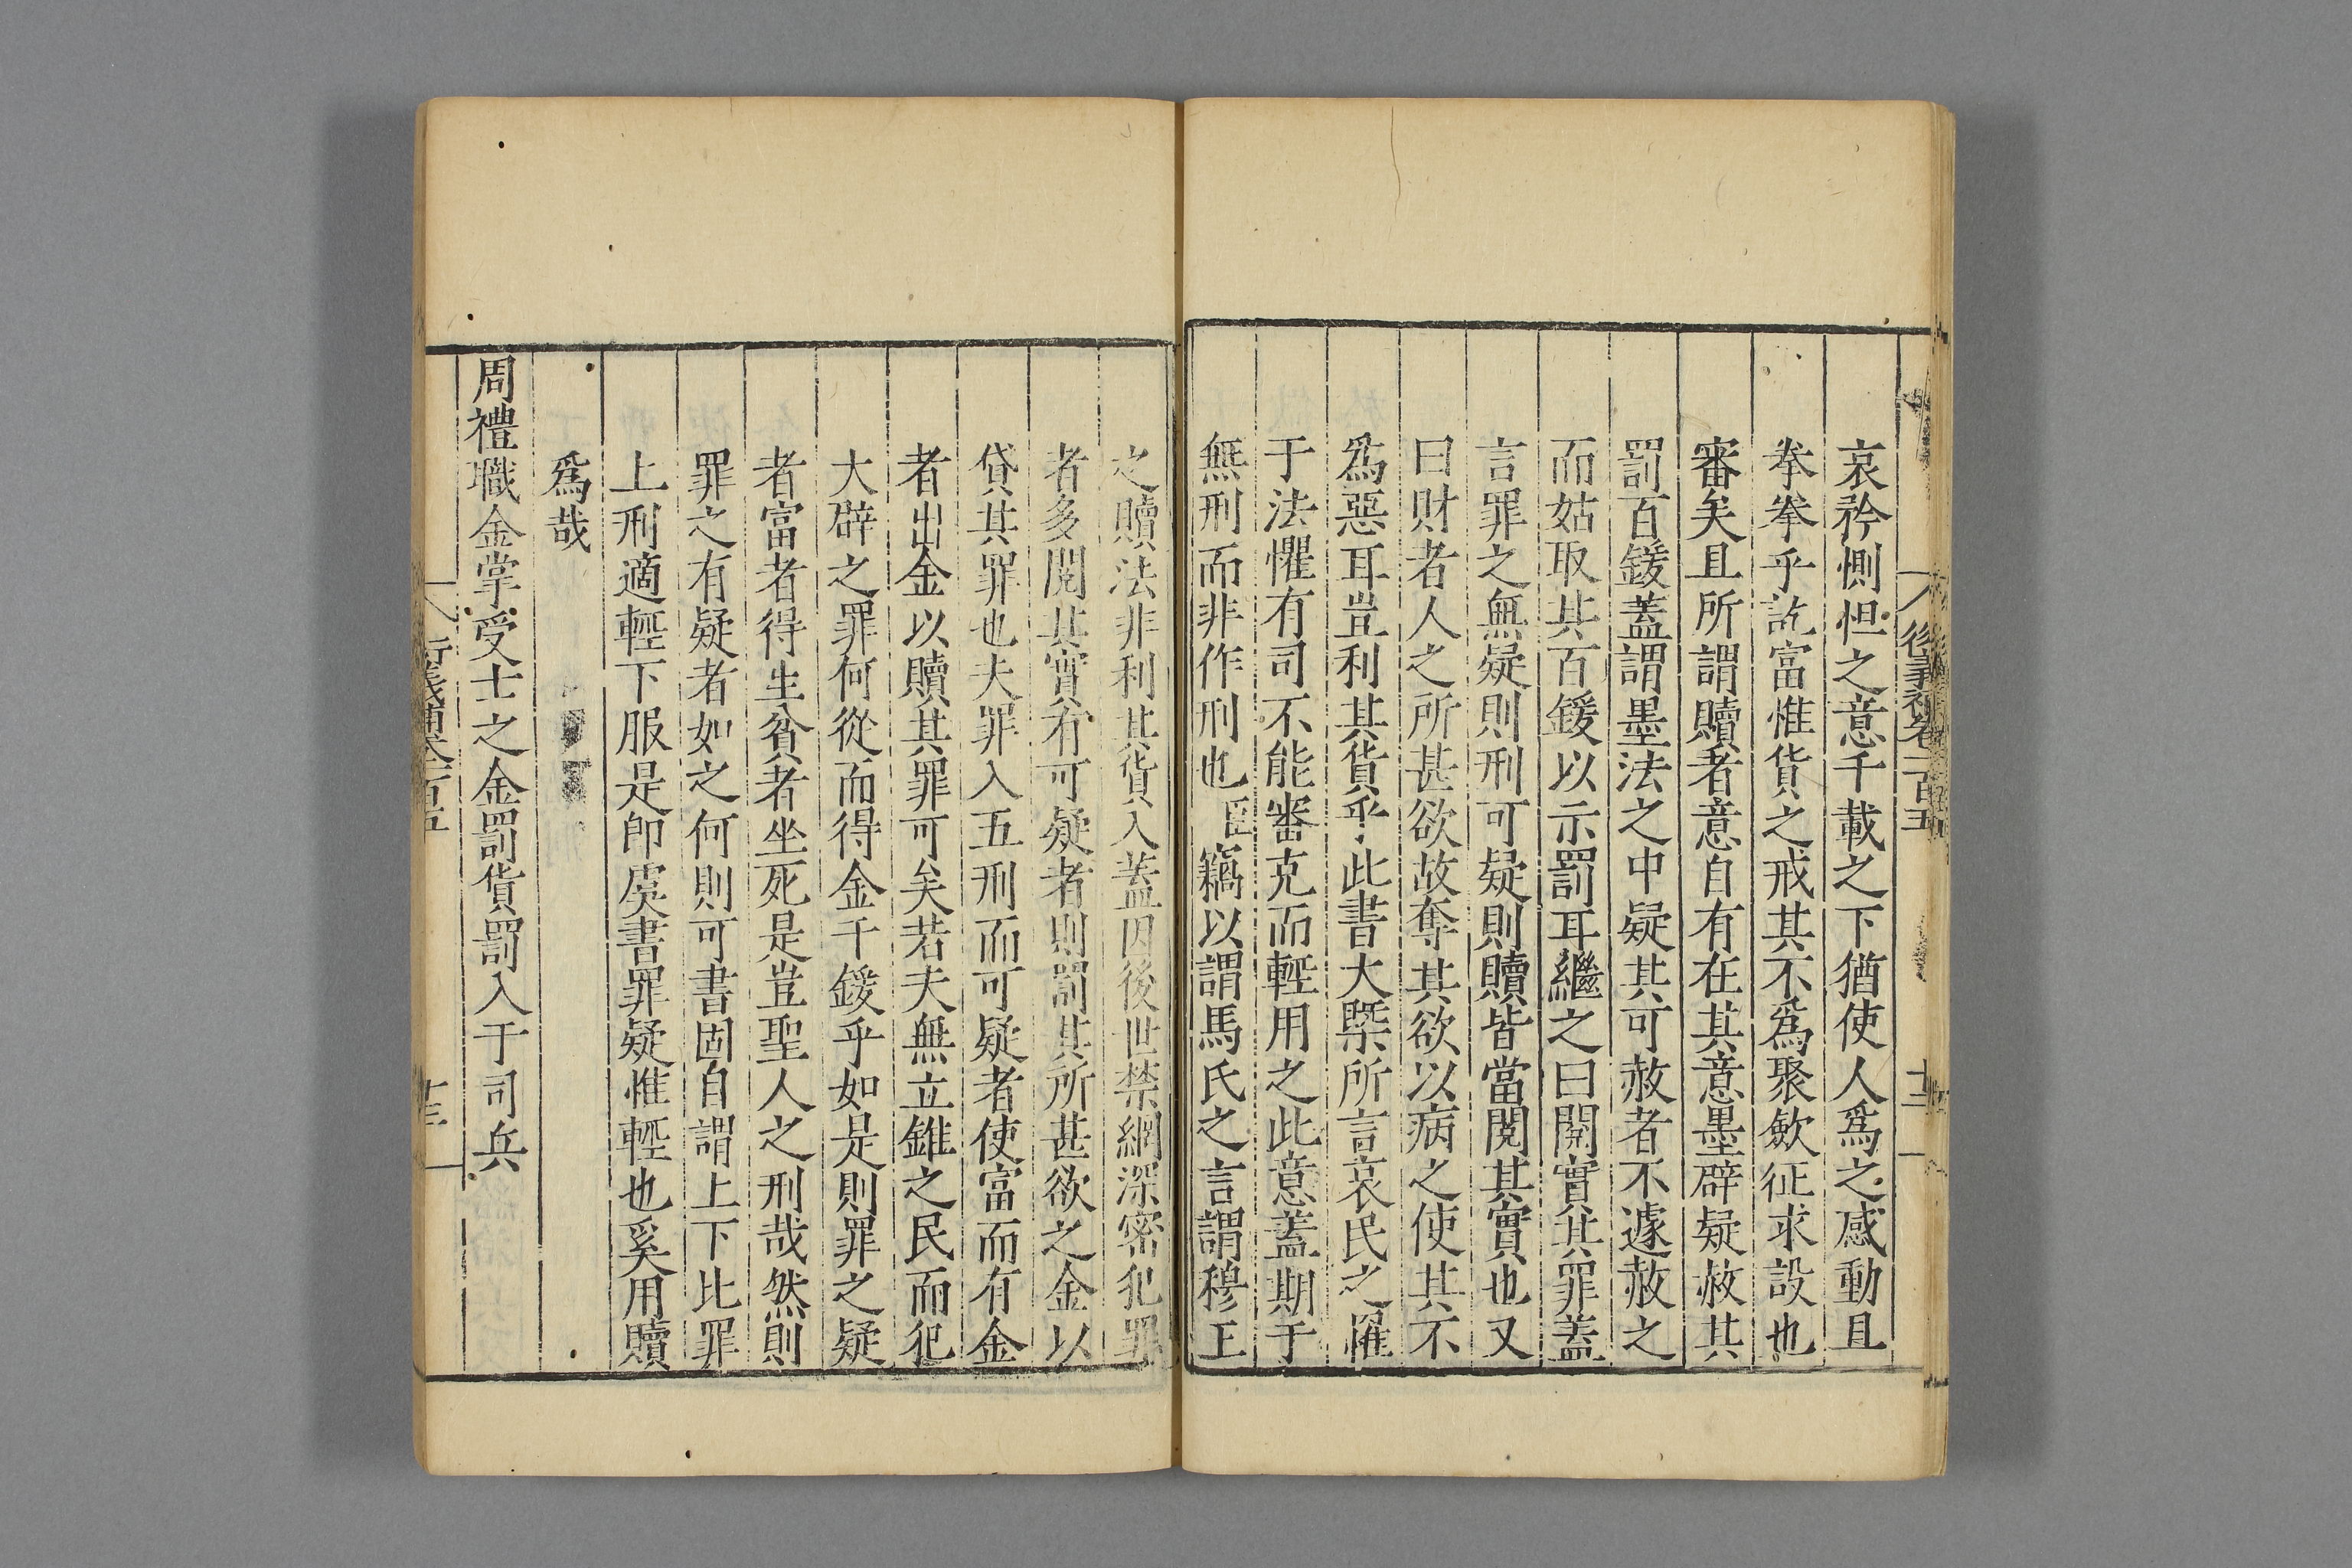 哀矜惻怛之意千載之下猶使人爲之感動且
拳拳乎訖富惟貨之戒其不爲聚歛征求設也
審矣且所謂贖者意自有在其意墨辟疑赦其
罰百鍰蓋謂墨法之中疑其可赦者不遽赦之
而姑取其百鍰以示罰耳繼之曰閱實其罪蓋
言罪之無疑則刑可疑則贖皆當閱其實也又
曰財者人之所甚欲故奪其欲以病之使其不
爲惡耳豈利其貨乎此書大槩所言哀民之罹
于法懼有司不能審克而輕用之此意蓋期于
無刑而非作刑也臣竊以謂馬氏之言謂穆王
之贖法非利其貨入蓋因後世禁網深密犯罪
者多閱其實有可疑者則罰其所甚欲之金以
貸其罪也夫罪入五刑而可疑者使富而有金
者出金以贖其罪可矣若夫無立錐之民而犯
大辟之罪何從而得金千鍰乎如是則罪之疑
者富者得生貧者坐死是豈聖人之刑哉然則
罪之有疑者如之何則可書固自謂上下比罪
上刑適輕下服是即虞書罪疑惟輕也奚用贖
爲哉
周禮職金掌受士之金罰貨罰入于司兵